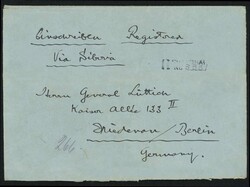 Einschreiben Registered
Via Siberia
Herrn General Lüttich
Kaiser Allée 133 II
Berlin
Germany.